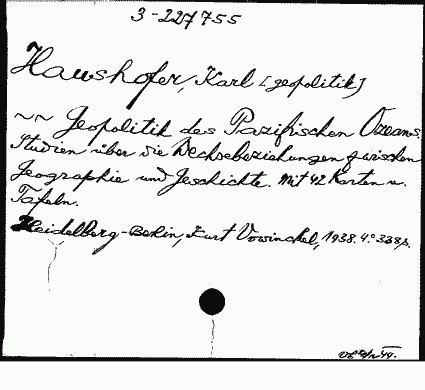 3-227755
Haushofer, Karl [geopolitik]
~~ Geopolitik des Pazifischen Ozeans
Studien über die Wechselbeziehungen zwischen
Geographie und Geschichte. Mit 42 Karten u.
Tafeln.
Heidelberg-Berlin, Kurt Vowinckel, 1938. 4.° 338p.